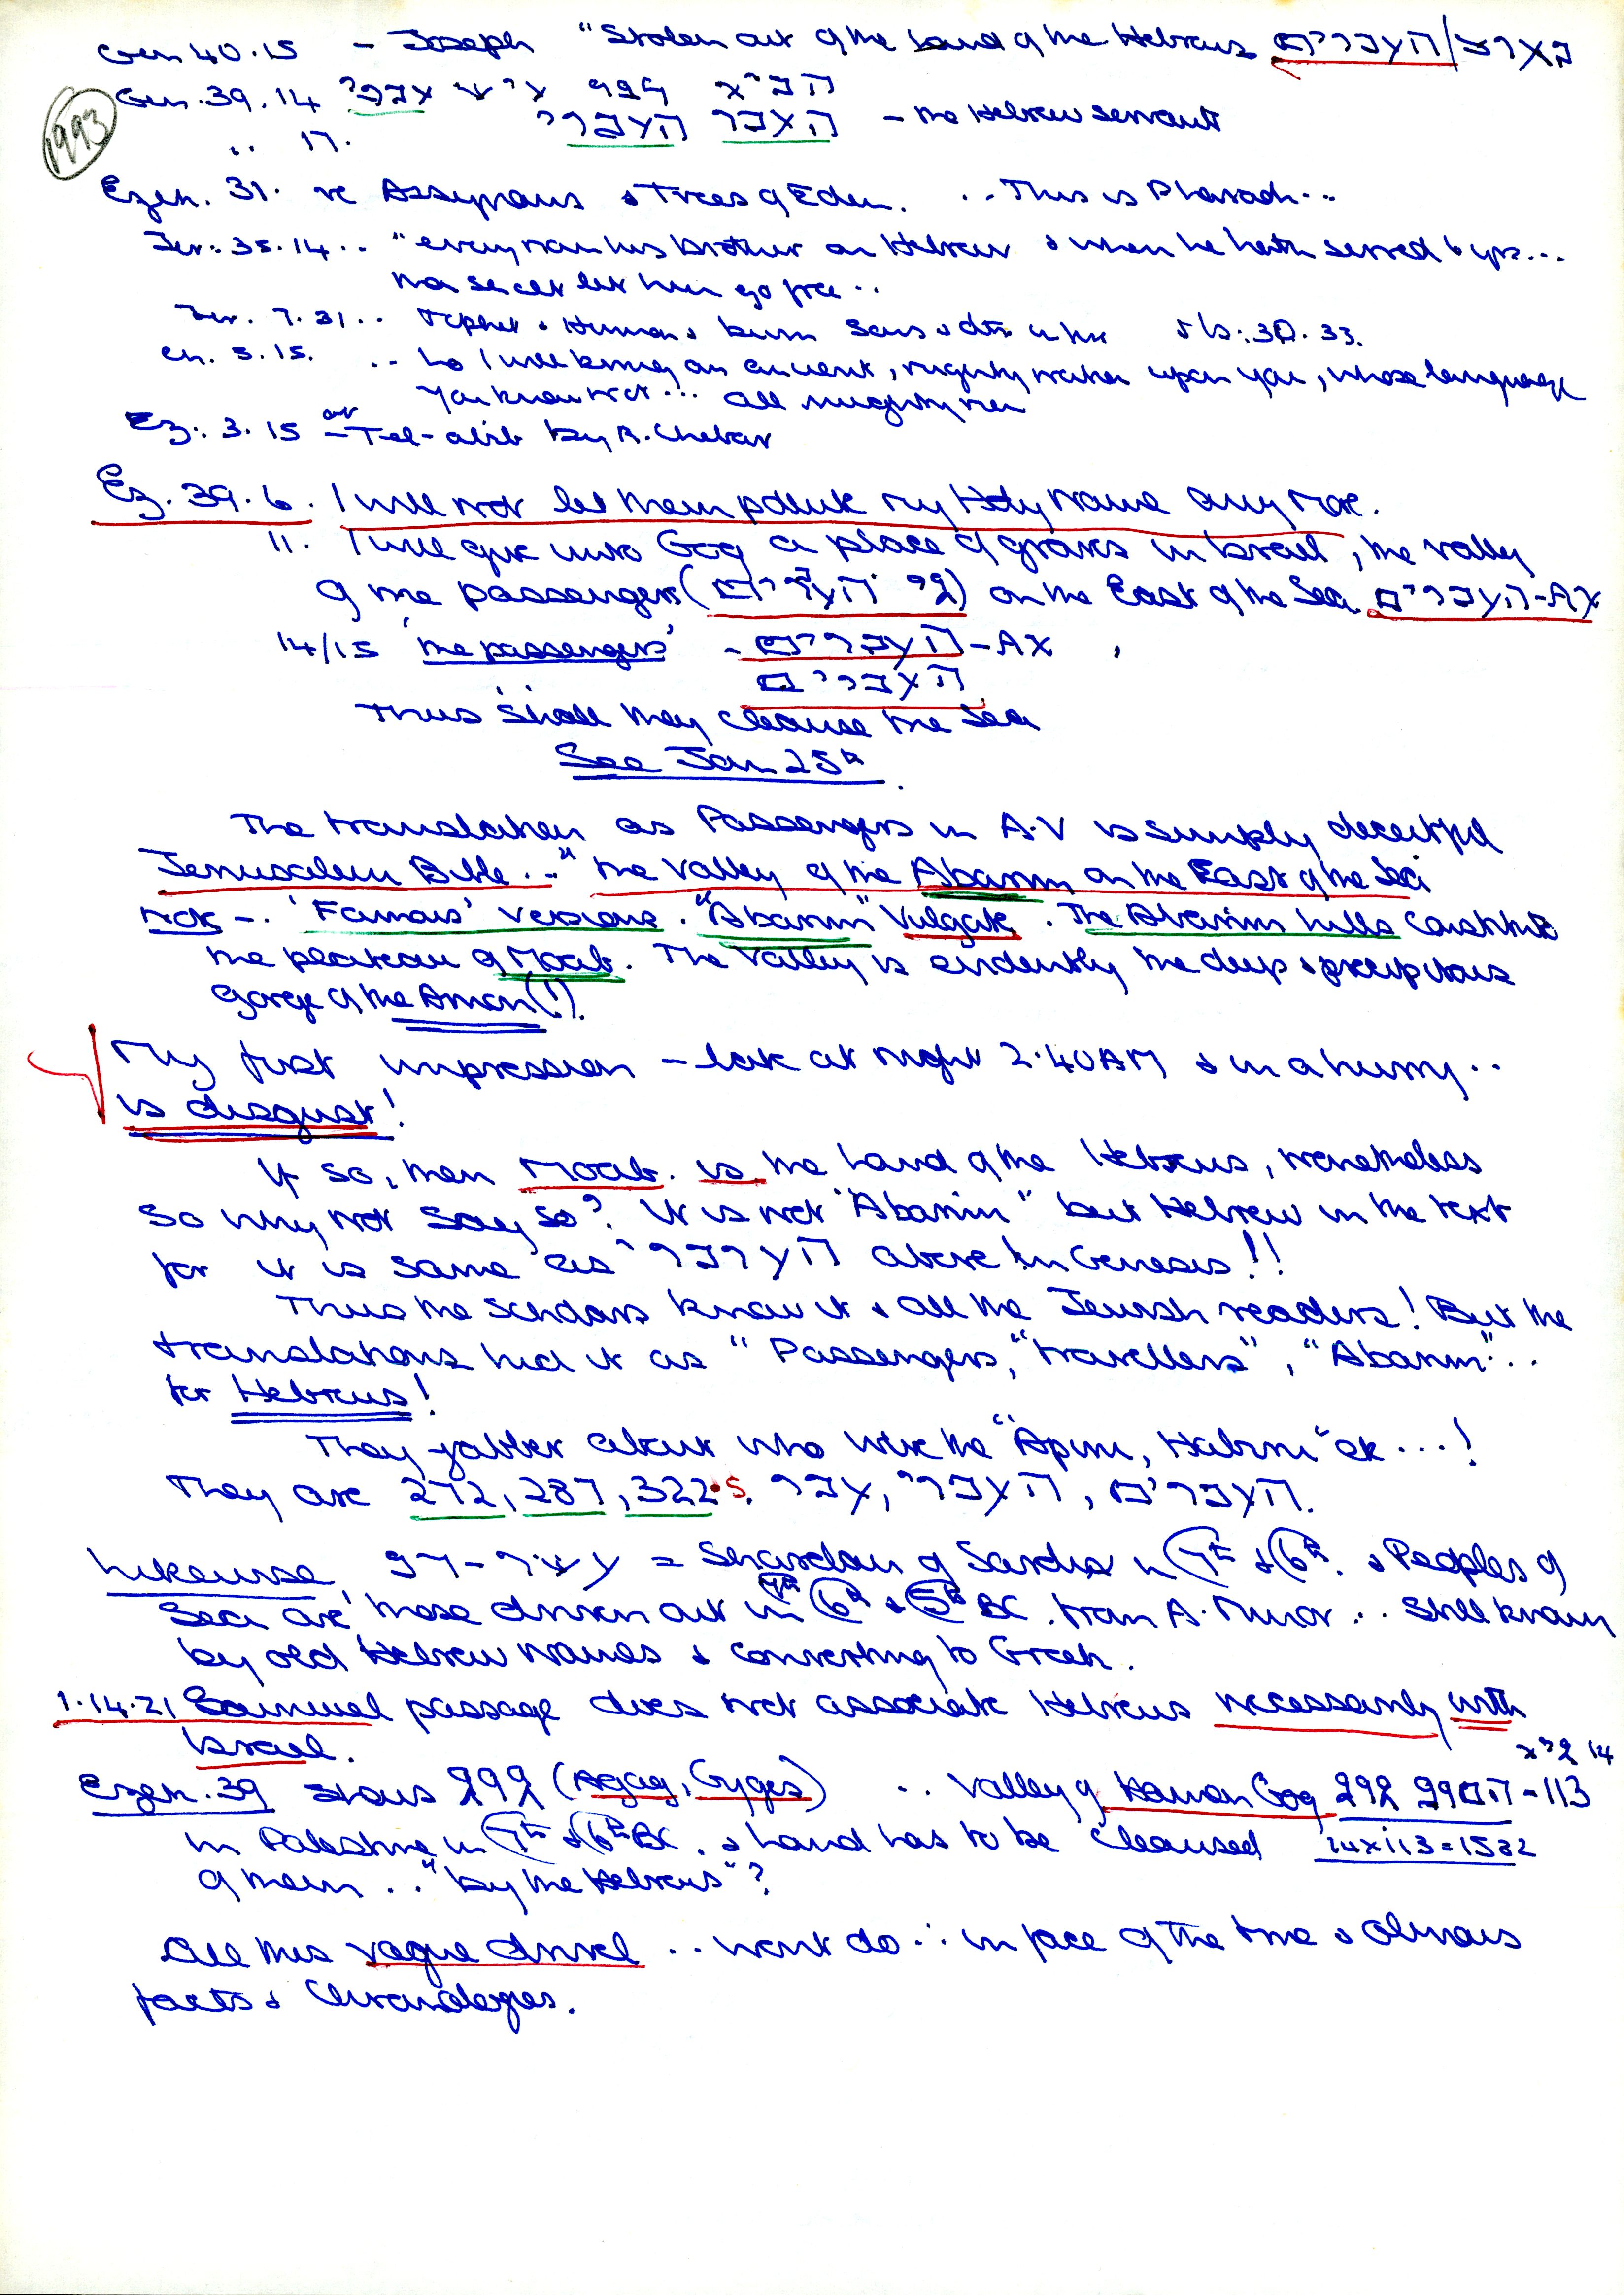 Gen 40.15 - Joseph "Stolen out of the Land of the Hebrews מארצ/העברים
Gen. 39.14 הביא עברי
1993
.. 17. העבר העברי - the Hebrew servant
Ezek. 31. re Assyrians & Trees of Eden. .. This is Pharaoh ..
Jer. 35.14 .. "every man his brother an Hebrew & when he hath served 6 yrs ...
let him go free ..
Jer. 7.31 .. Tophet & burn sons & dtrs in fire & Is: 30.33.
Ch. 5.15. .. Lo I will bring an ancient, mighty nation upon you, whose language
you know not ... all mighty men
Ez. 3.15 at Tel-abib by R. Chebar
Ez. 39.6. I will not let them pollute my Holy name any more.
11. I will give unto Gog a place of graves in Israel, the valley
of the passengers (גי העברים) on the East of the Sea. העברים-AX
14/15 'the passengers' - העברים-AX ,
העברים
Thus shall they cleanse the Sea
See Jan 25th.
The translation as Passengers in A.V is simply deceitful
Jerusalem Bible ... "the Valley of the Abarim on the East of the Sea
note -. 'Famous' versions. "Abarim" Vulgate. The Abarim hills constitute
the plateau of Moab. The Valley is evidently the deep & precipitous
gorge of the Arnon (!).
My first impression - late at night 2.40AM & in a hurry ..
is disgust!
If so, then Moab. is the Land of the Hebrews, nonetheless
so why not say so? It is not "Abarim" but Hebrew in the text
for it is same as העברי above in Genesis!!
Thus the scholars know it & all the Jewish readers! But the
translations hid it as "Passengers," "travellers", "Abarim" ..
for Hebrews!
They jabber about who were the "Apiru, Habiru" etc ...!
They are 272, 287, 322.5. עבר, העברי, העברים.
Likewise, = Shardan of Sardis in 7th & 6th. & Peoples of
Sea are those driven out in 7th 6th & 5th BC. from A. Minor .. still known
by old Hebrew names & converting to Greek.
1.14.21 Samuel passage does not associate Hebrews necessarily with
Israel.
גיא 14
Ezek. 39 shows גוג (Agag, Gyges) .. Valley of Hamon Gog המונ גוג - 113
in Palestine in 7th & 6th BC. & Land has to be cleansed 14x113=1582
of them .. "by the Hebrews"?
All this vague drivel .. wont do ∴ in face of the time & obvious
facts & Chronologies.